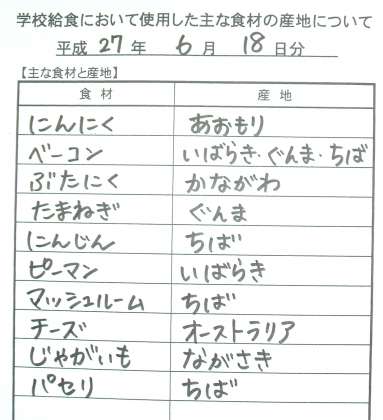 学校給食において使用した主な食材の産地について
平成 27 年 6 月 18 日分
【主な食材と産地】
食材 産地
にんにく あおもり
ベーコン いばらき・ぐんま・ちば
ぶたにく かながわ
たまねぎ ぐんま
にんじん ちば
ピーマン いばらき
マッシュルーム ちば
チーズ オーストラリア
じゃがいも ながさき
パセリ ちば